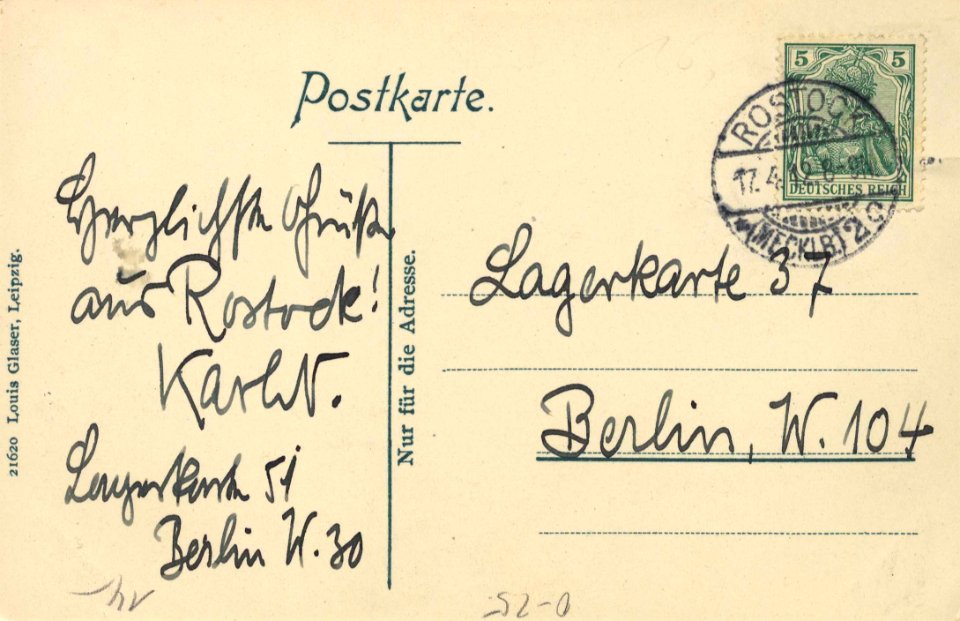 Postkarte.
5 5
DEUTSCHES REICH
ROSTOCK
17.4.12.8-9N.
*(MECKLB)2*
Herzlichste Grüße
aus Rostock!
Karl N.
Lagerkarte 51
Berlin W. 30
Nur für die Adresse.
Lagerkarte 37
Berlin, W. 104
21620 Louis Glaser, Leipzig.